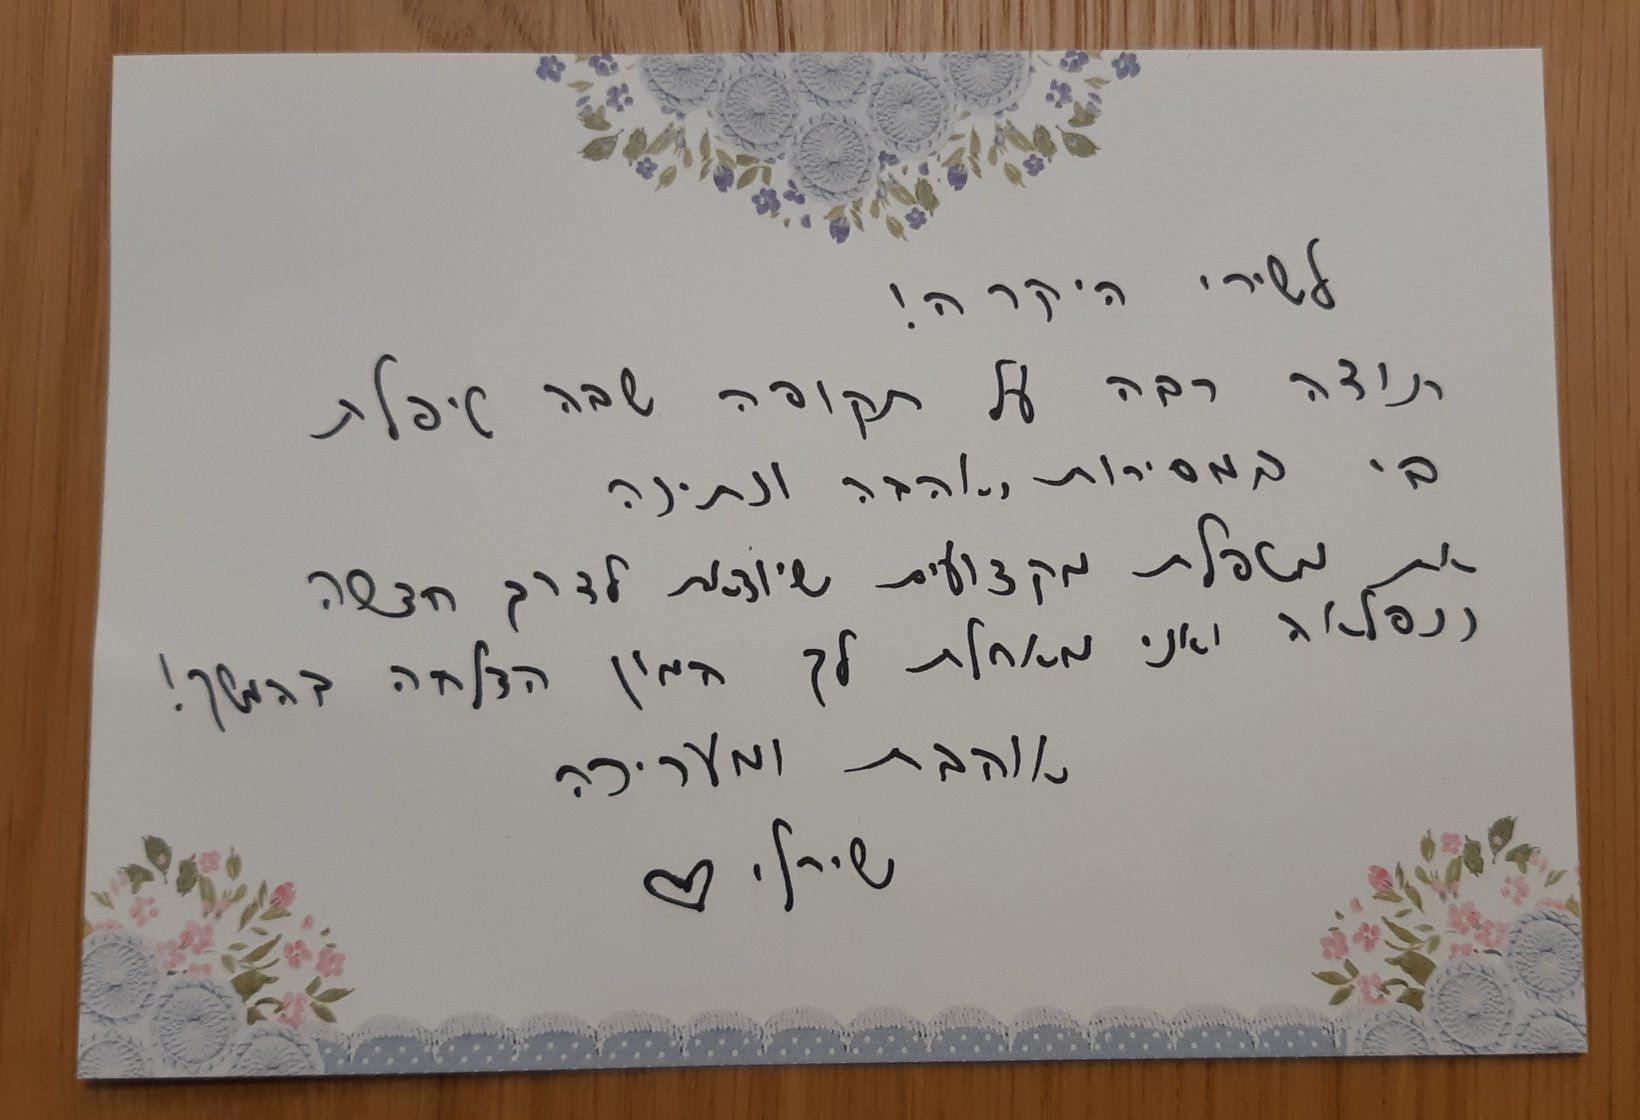 לשירי היקרה!
תודה רבה על תקופה שבה טיפלת
בי במסירות, אהבה ונתינה
את מטפלת מקצועית שיוצאת לדרך חדשה
ונפלאה ואני מאחלת לך המון הצלחה בהמשך!
אוהבת ומעריכה
שירלי ♡